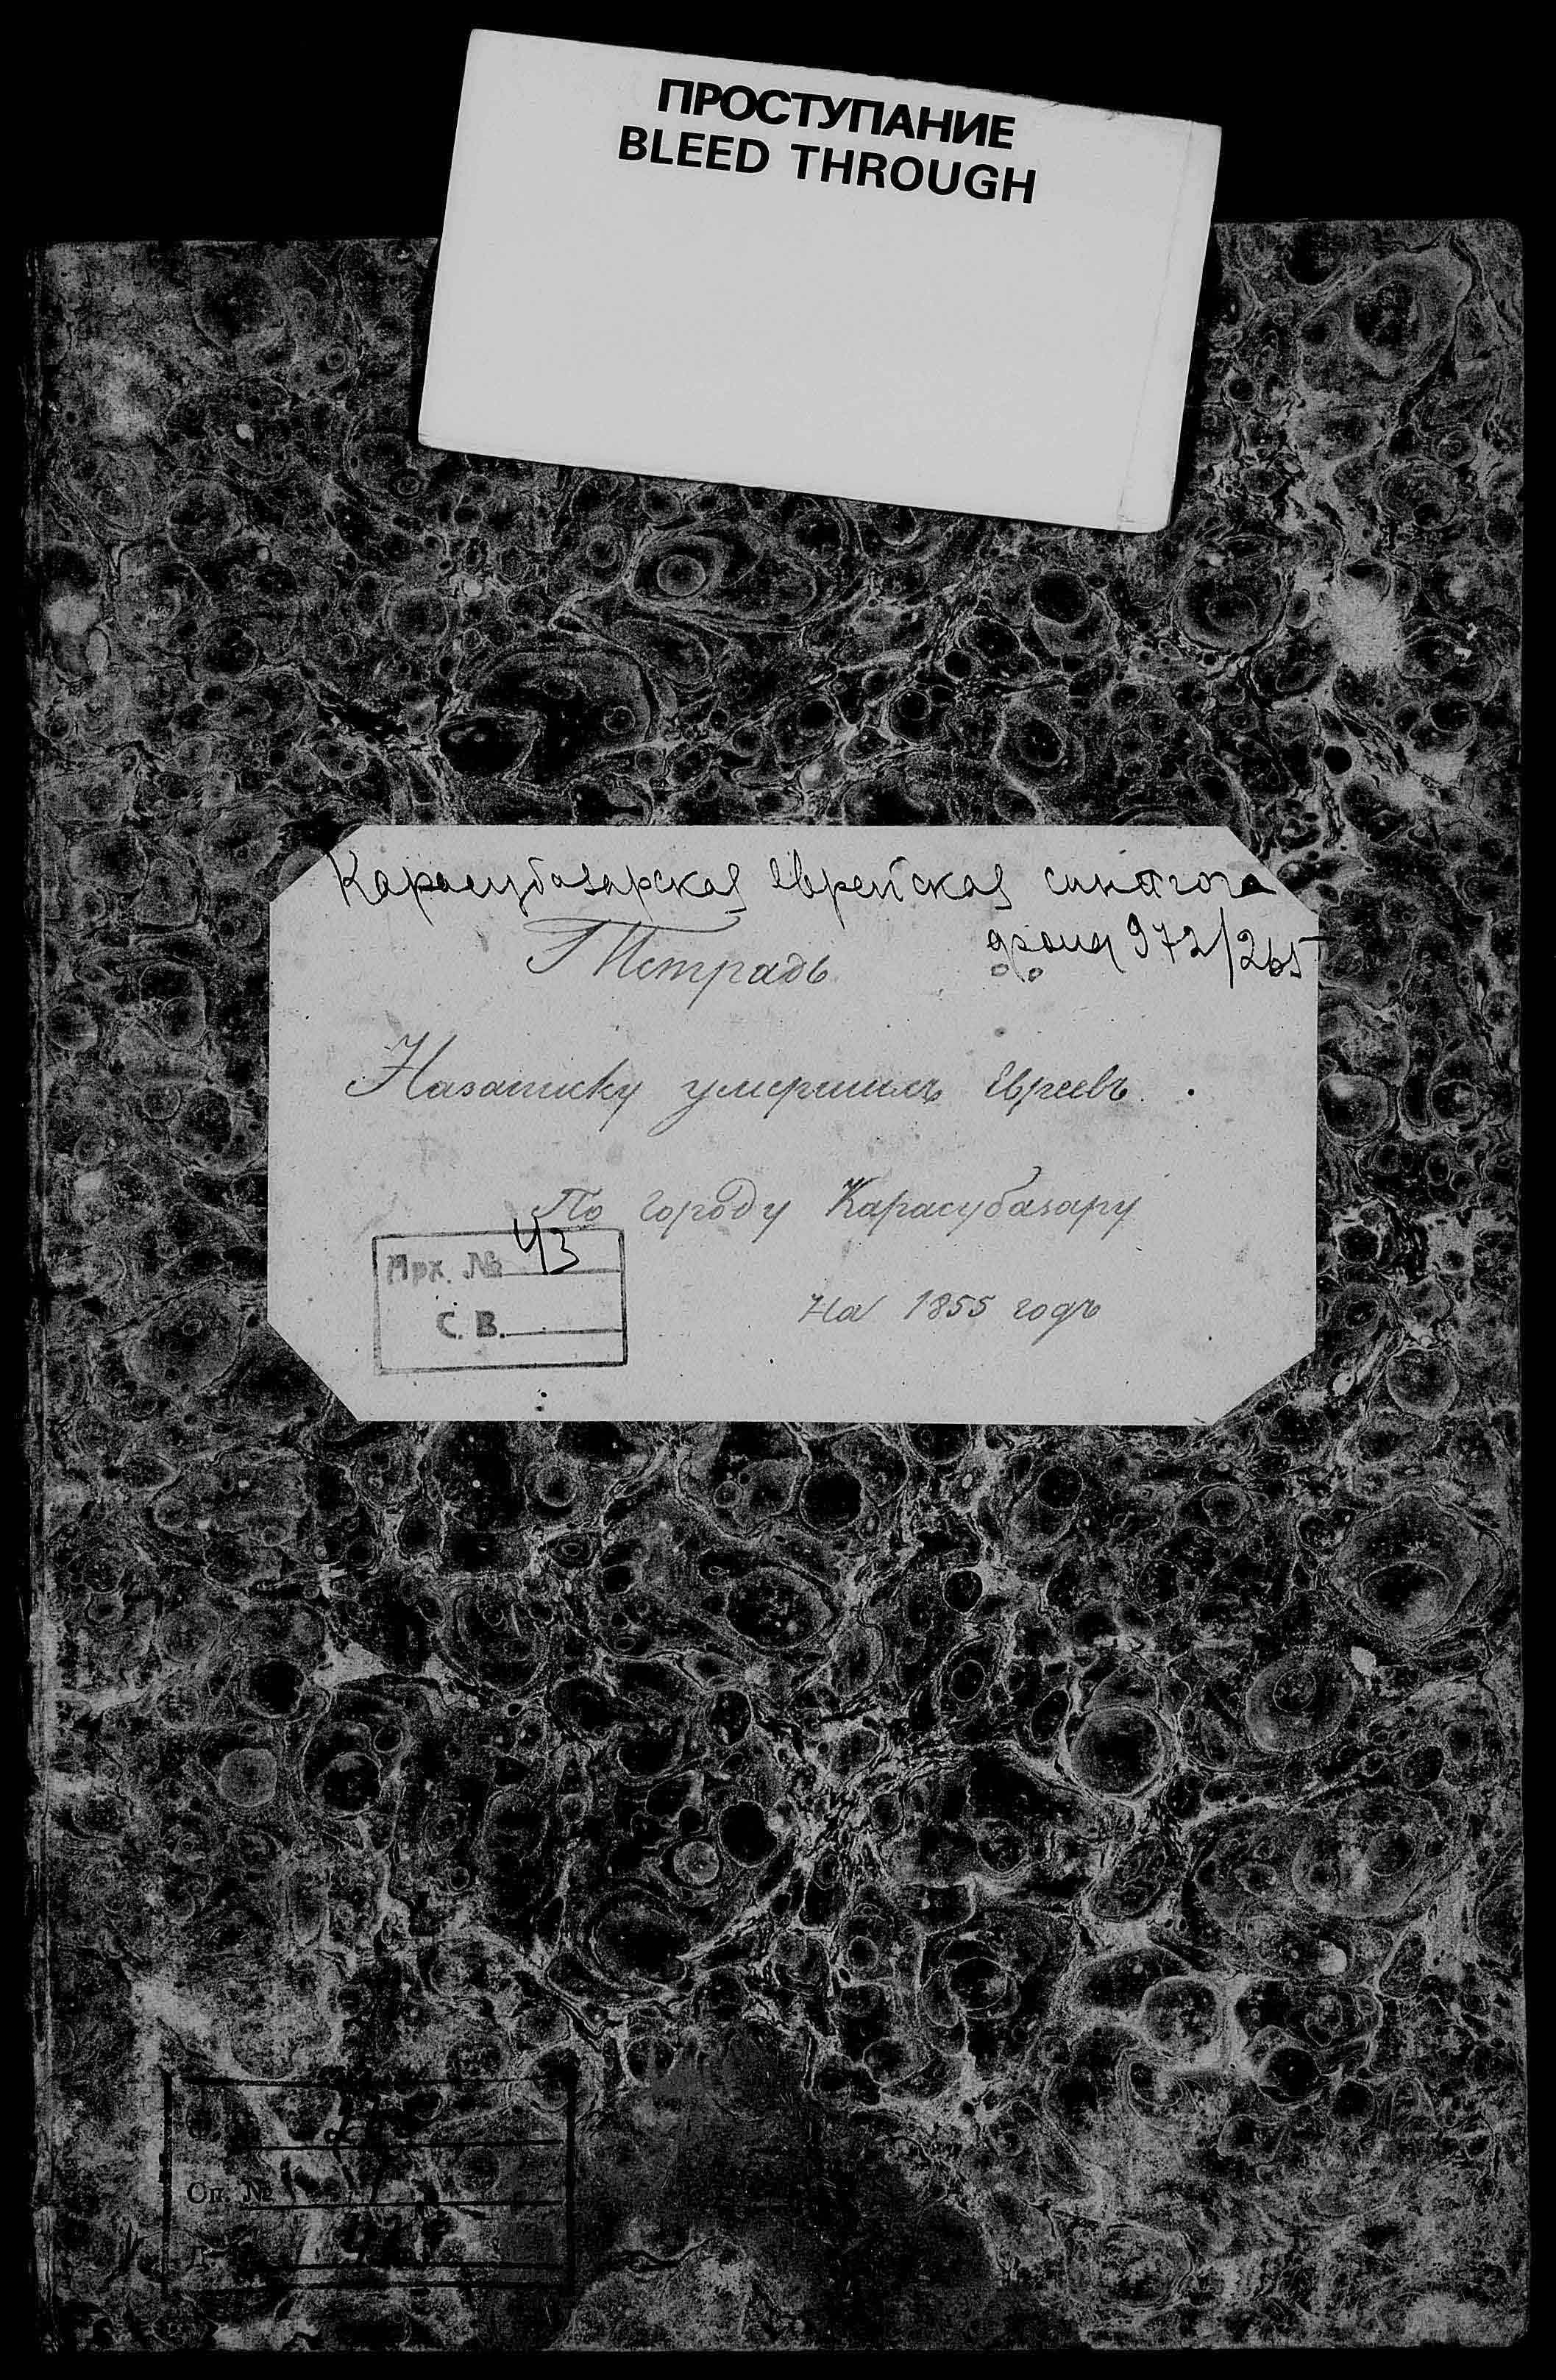 ПРОСТУПАНИЕ
BLEED THROUGH
Карасубазарская еврейская синагога
фонд 972/265
Тетрадь
Назаписку умершихъ Евреевъ.
По городу Карасубазару
Арх. № 43
С. В.
На 1855 годъ
Оп. №